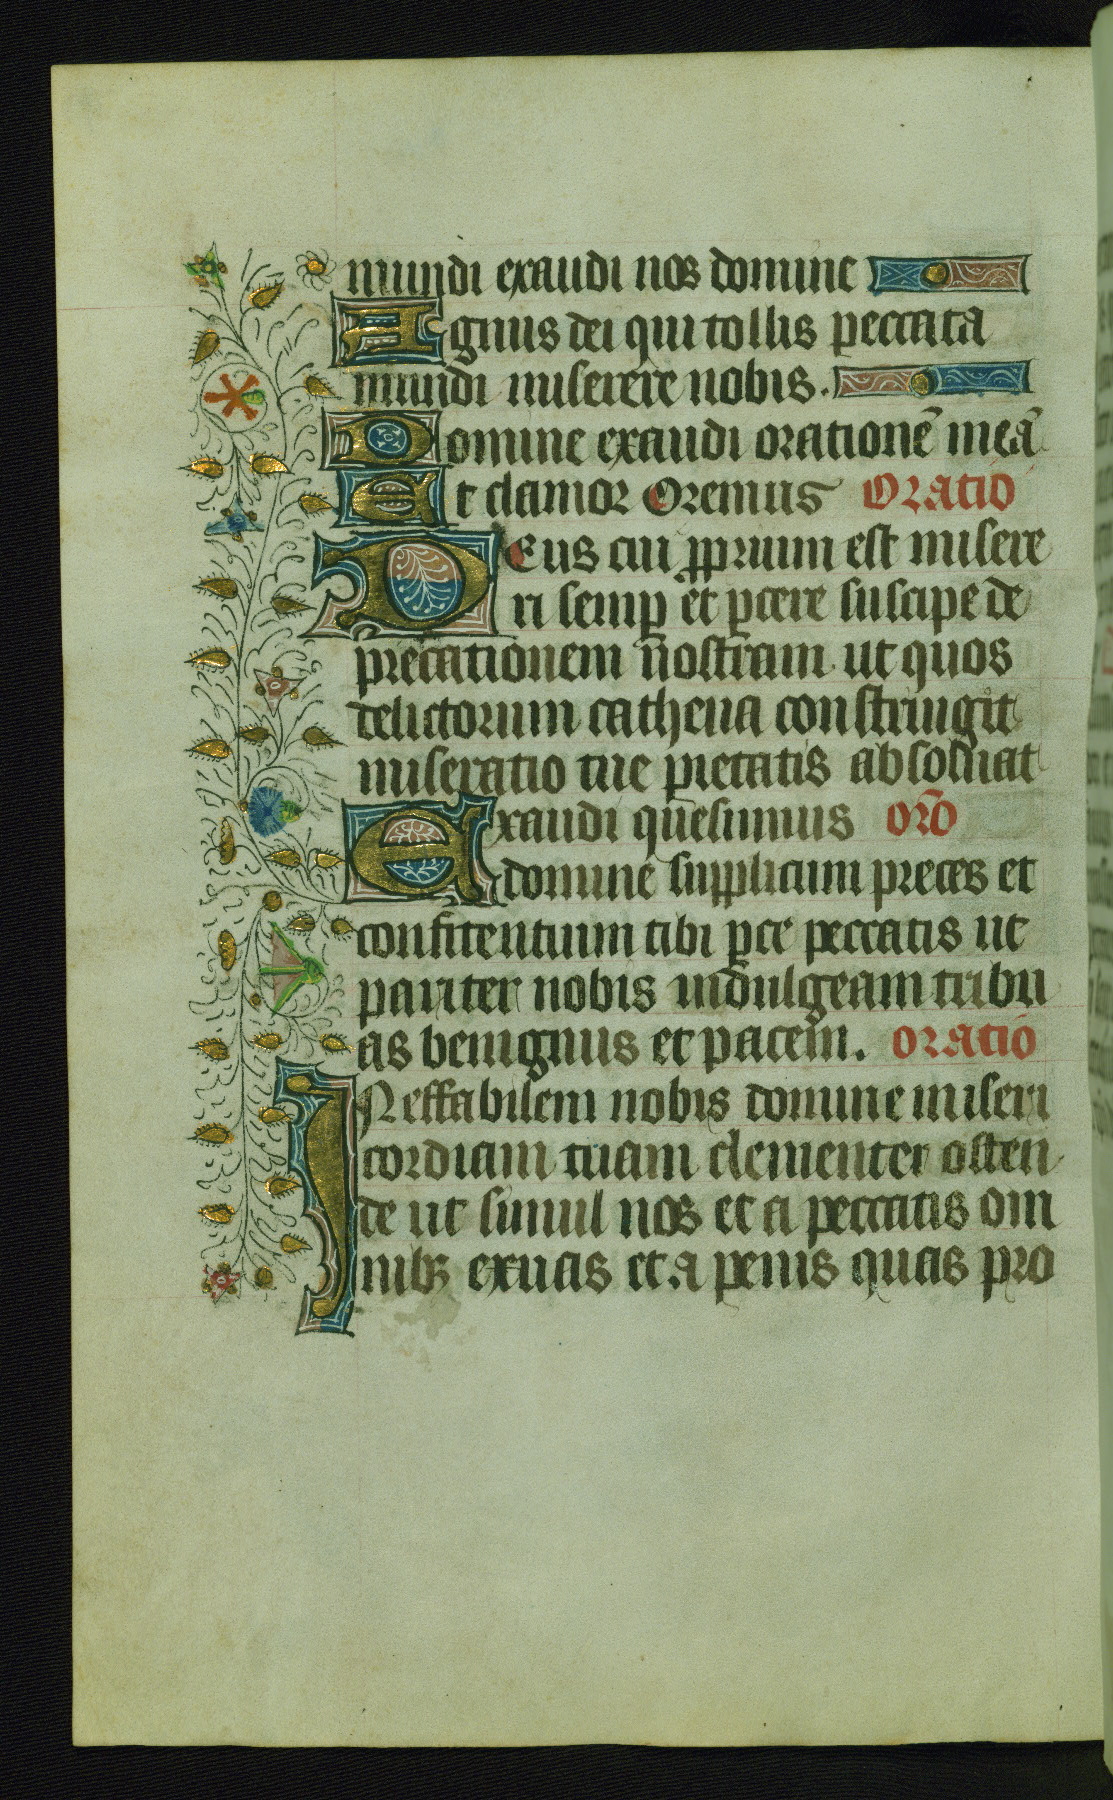 mundi exaudi nos domine
Agnus dei qui tollis peccata
mundi miserere nobis.
Domine exaudi orationē meā
Et clamor Oremus Oratio
Deus cui ꝓprium est misere
ri semꝑ et ꝑcere suscipe de
precationem nostram ut quos
delictorum cathena constringit
miseratio tue pietatis absoluat
Exaudi quesumus orō
domine supplicum preces et
confitentium tibi ꝑce peccatis ut
pariter nobis indulgeam tribu
as benignus et pacem. oratio
INeffabilem nobis domine miseri
cordiam tuam clementer osten
de ut simul nos et a peccatis om
nibꝫ exuas et a penis quas pro